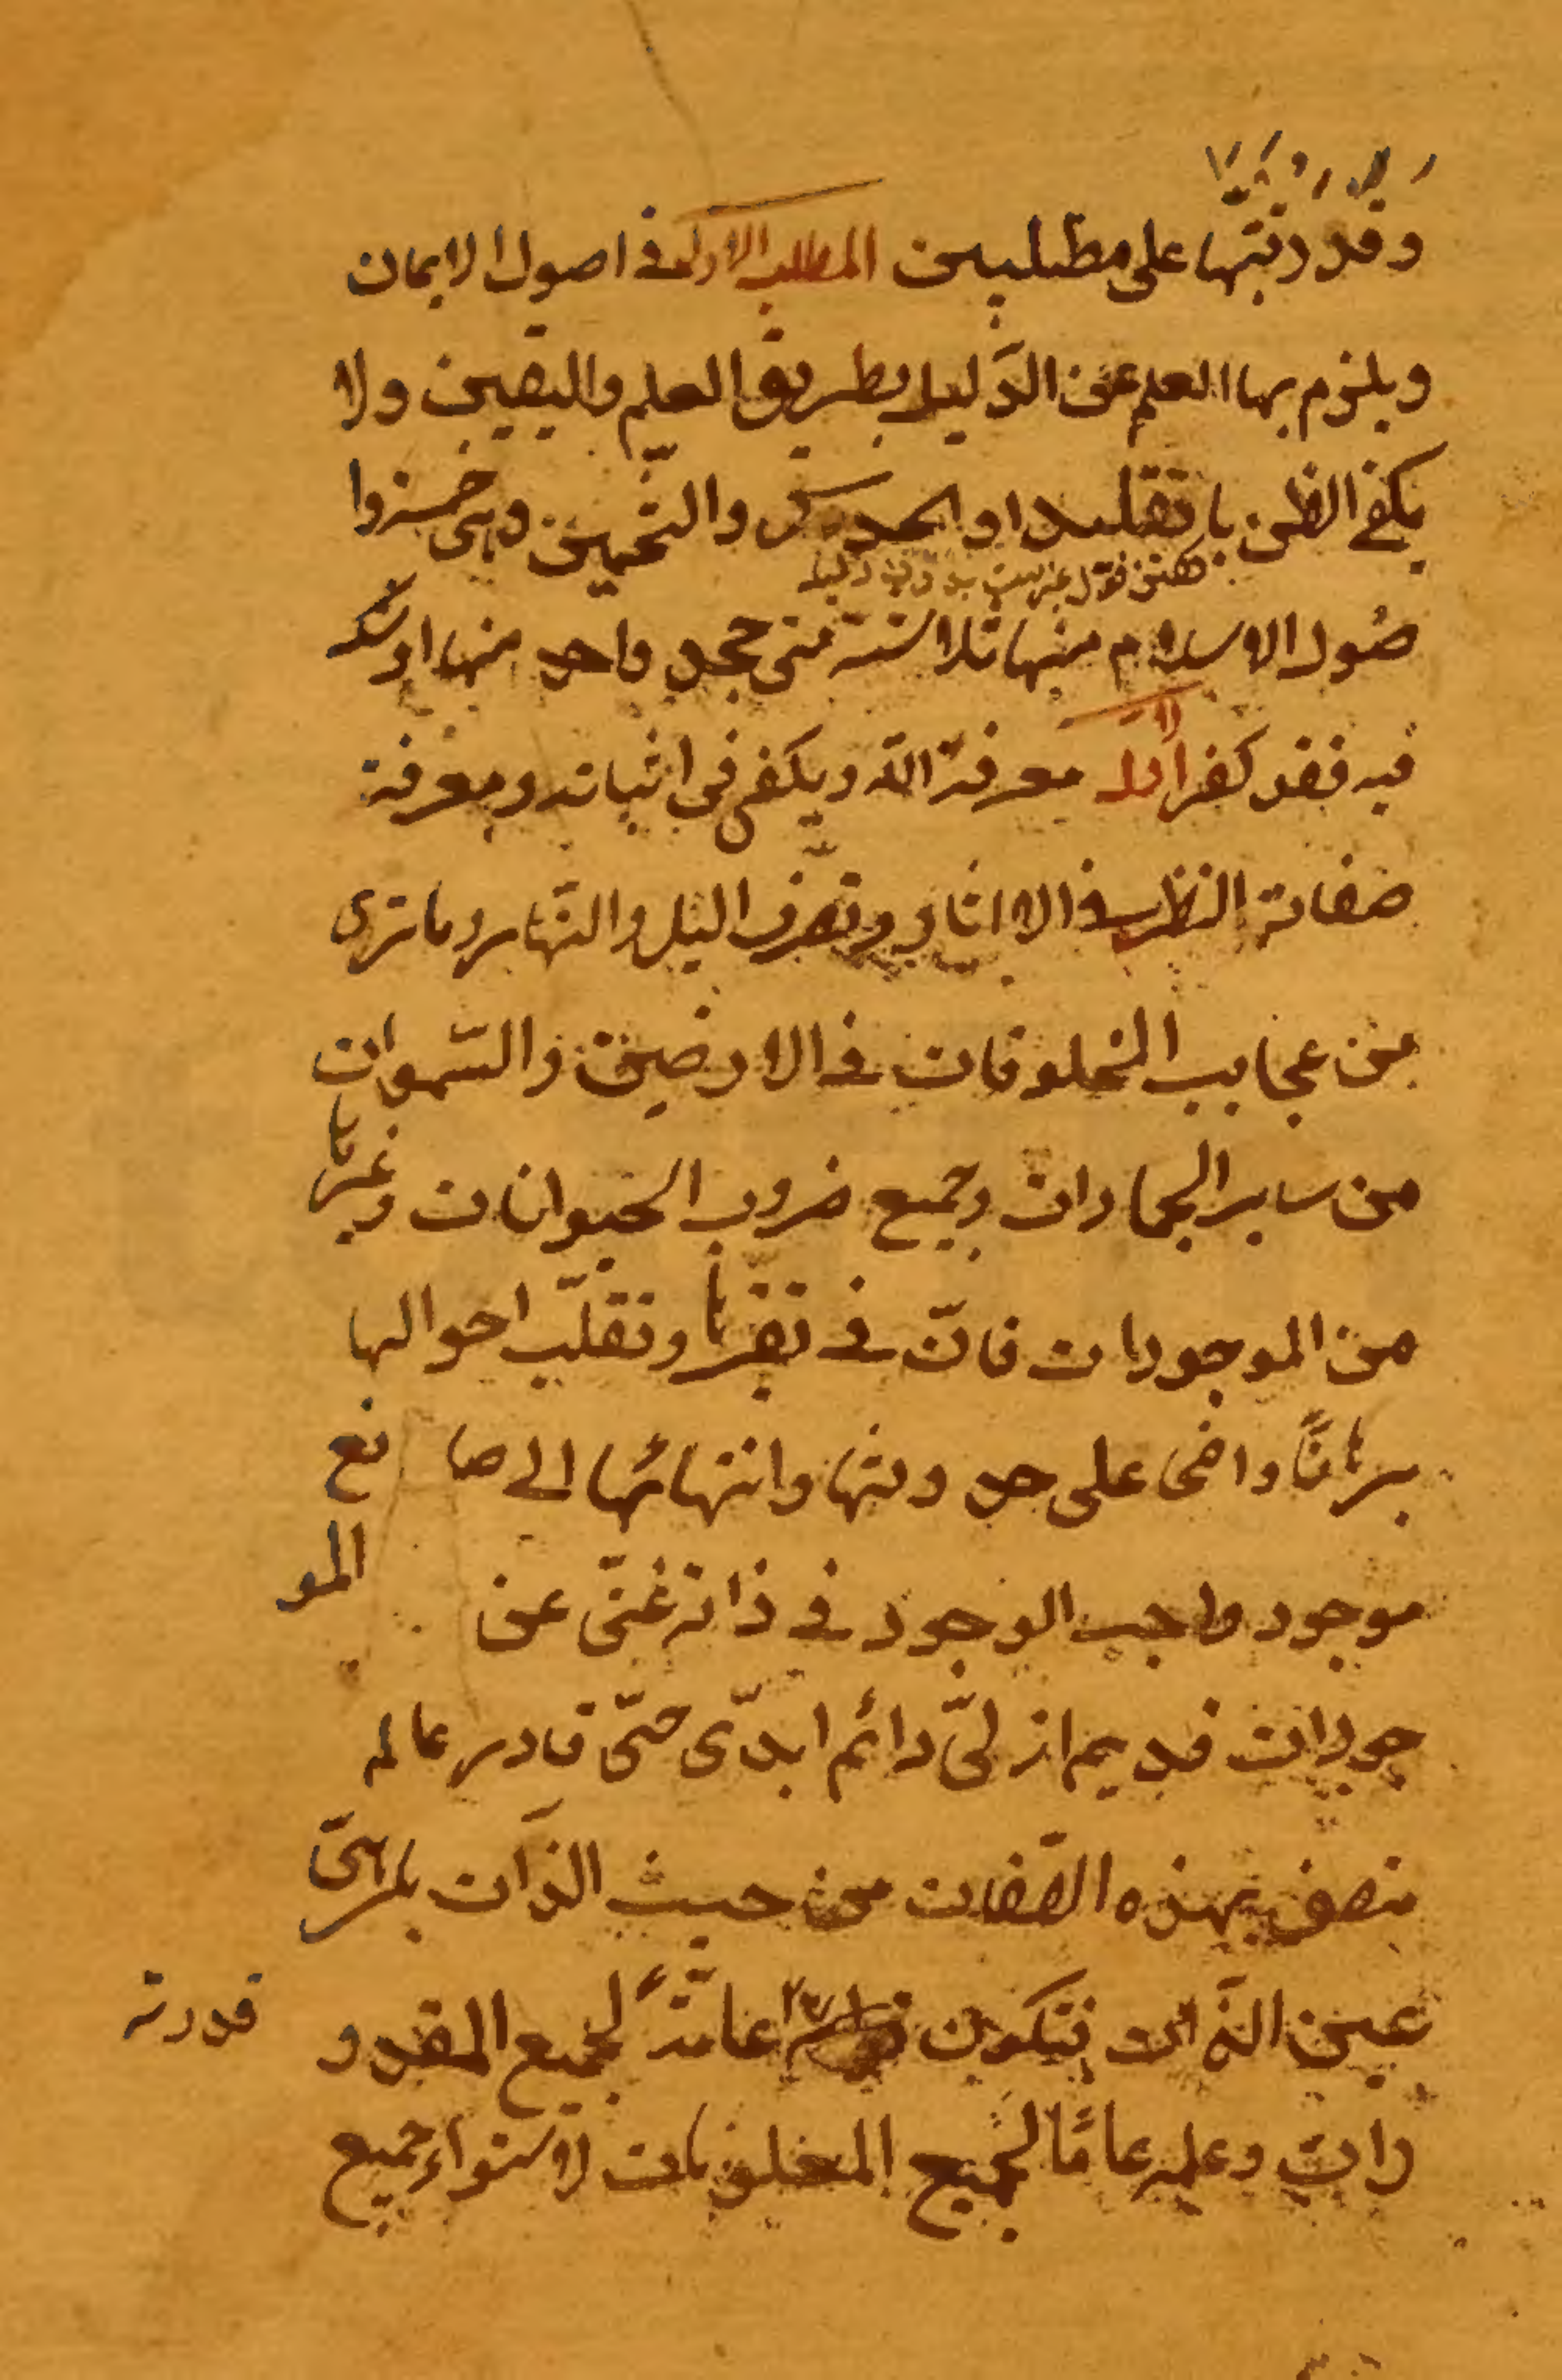 وقد رتبتها على مطلبين المطلب الاول في اصول الايمان
ويلزم بها العلم عن الدَليل بطريق العلم واليقين ولا
يكفي الظن باتقليد او الحدس والتخمين وهى خمسزوا
صُول الاسلام منها ثلاثة متى جحد واحد منها او شك
فيه فقد كفر الاول معرفة اللّه ويكفى في اثباته ومعرفة
صفاته النظر في الااثار وتصرف اليل والنّهار وما ترى
من عجايب المخلوقات في الارضين والسّموات
من ساير الجمادات وجميع ضروب الحيوانات وغيرها
من الموجودات فانّ في تغيّرها وتقلّب احوالها
برهانًا واضحى على حدوثها وانتهائها الى صا نع
موجود واجب الوجود في ذاته غنىّ عن المو
جودات قديم ازلىّ دائم ابدّى حىّ قادر عالم
متصف بهذه الصّفات من حيث الذَات بل هىّ
عين الذَات فتكون قدرته عامّةً لجميع المقدو
رات وعلمه عامًا لجميع المعلومات لاستواء جميع